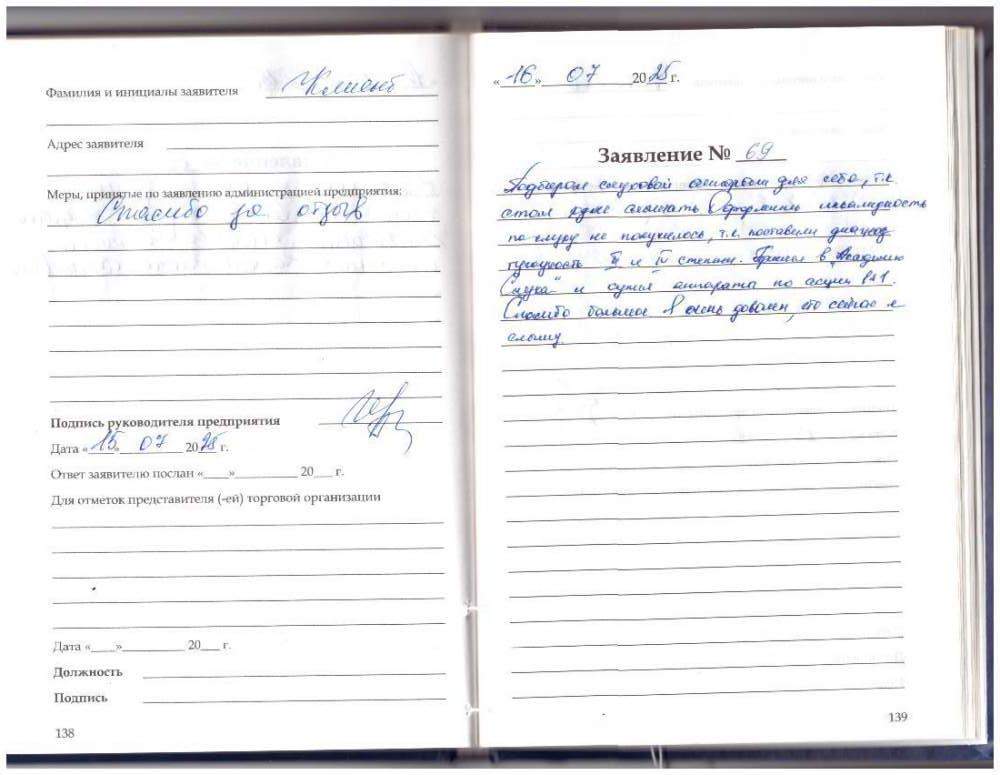 Фамилия и инициалы заявителя Клиент
Адрес заявителя
Меры, принятые по заявлению администрацией предприятия:
Спасибо за отзыв
Подпись руководителя предприятия
Дата «15» 07 2025 г.
Ответ заявителю послан «___»__________ 20___ г.
Для отметок представителя (-ей) торговой организации
Дата «____»__________ 20___ г.
Должность
Подпись
138
«16» 07 2025 г.
Заявление № 69
Подбирал слуховой аппарат для себя, т.к.
стал хуже слышать. Оформить инвалидность
по слуху не получилось, т.к. поставили диагноз
тугоухость II и IV степени. Пришел в "Академию
Слуха" и купил аппарата по акции 1+1.
Спасибо большое я очень доволен, что сейчас я
слышу.
139